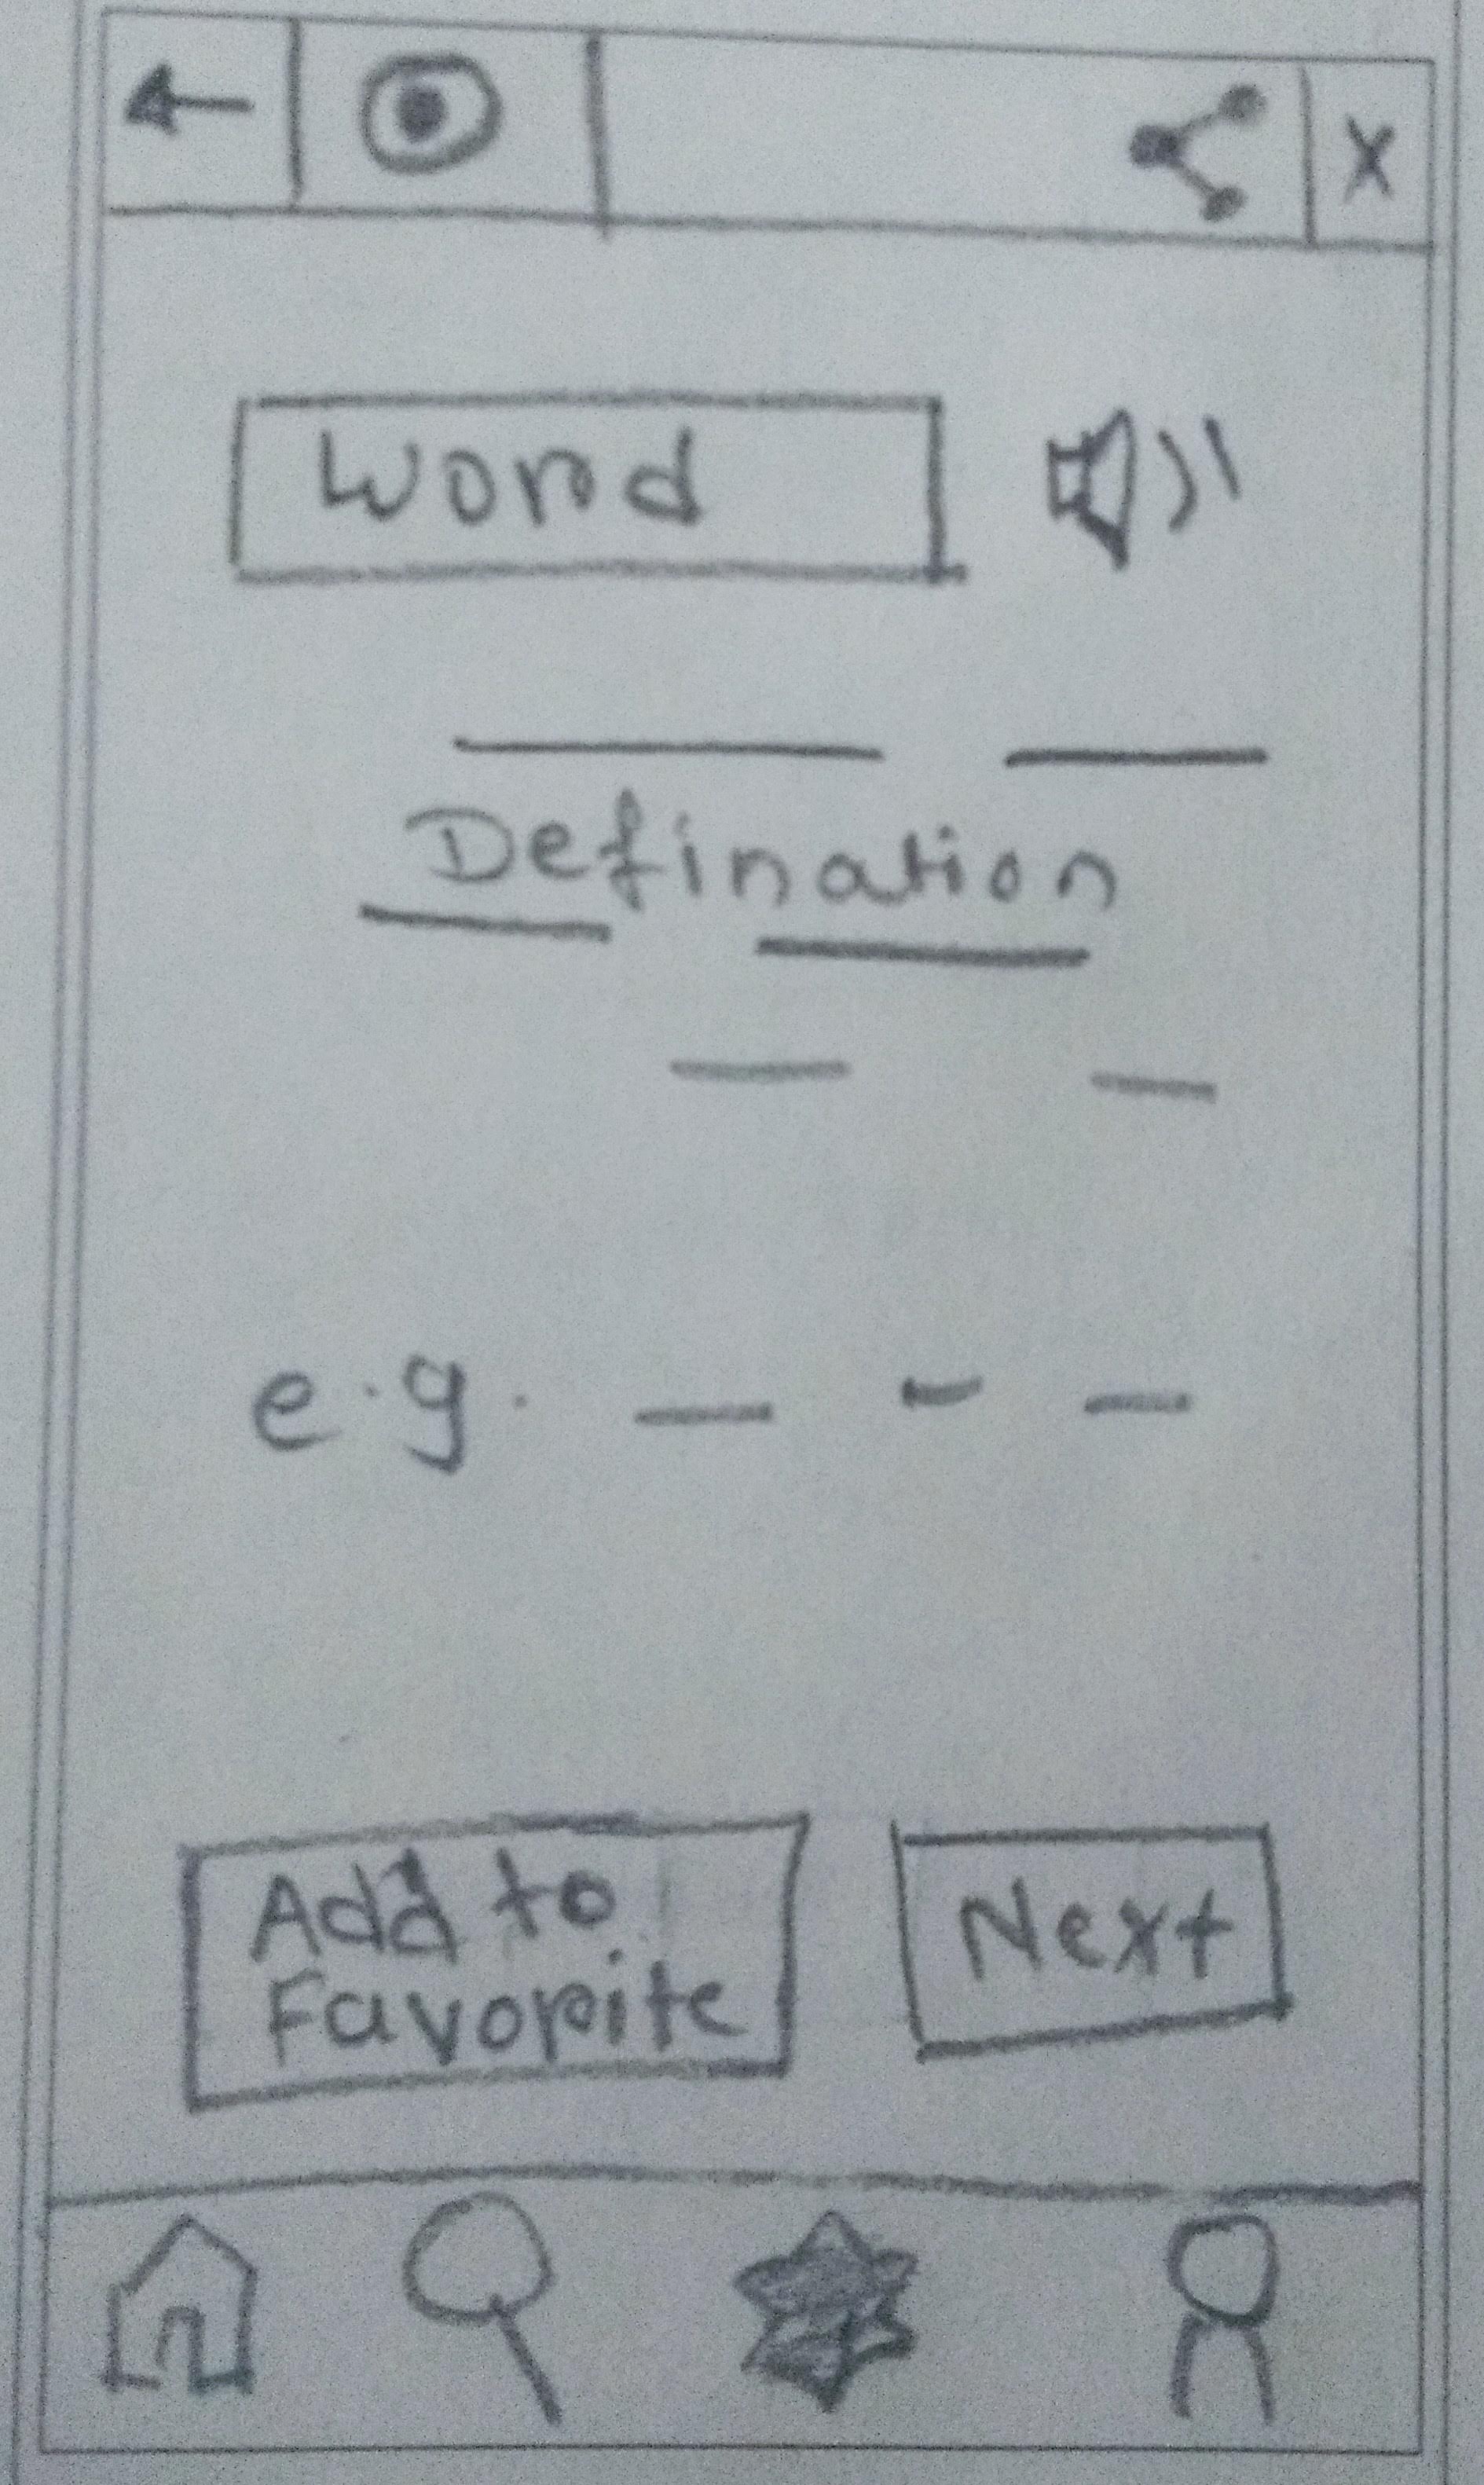 X
Word
Defination
e.g.
Add to
Favorite
Next